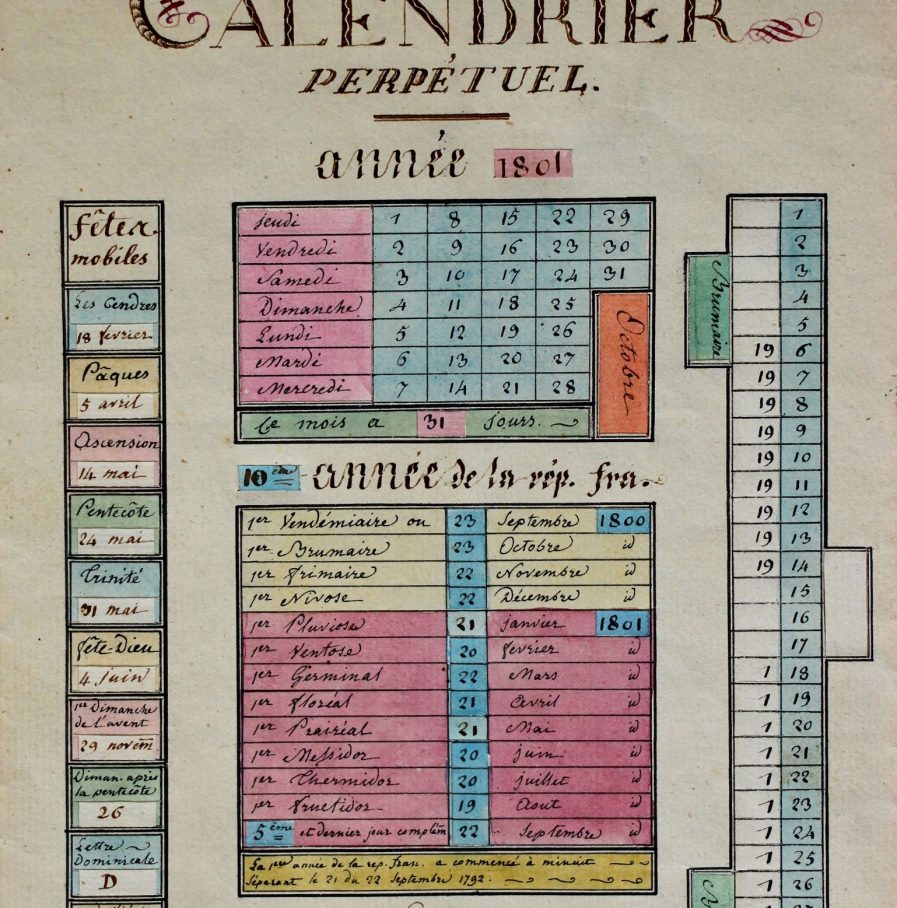 CALENDRIER
PERPÉTUEL.
année 1801
fêtes
mobiles
Les Cendres
18 fevrier
Pâques
5 avril
Ascension
14 mai
Pentecôte
24 mai
Trinité
31 mai
fête-Dieu
4 juin
1er Dimanche
de l'avent
29 novem
Diman. après
la pentecôte
26
Lettre
Dominicale
D
jeudi 1 8 15 22 29
Vendredi 2 9 16 23 30
Samedi 3 10 17 24 31
Dimanche 4 11 18 25
Lundi 5 12 19 26
Mardi 6 13 20 27
Mercredi 7 14 21 28
Octobre
Ce mois a 31 jours.
10ème année de la rép. fra.
1er Vendémiaire ou 23 Septembre 1800
1er Brumaire 23 Octobre id
1er frimaire 22 Novembre id
1er Nivose 22 Décembre id
1er Pluviose 21 janvier 1801
1er Ventose 20 fevrier id
1er Germinal 22 Mars id
1er floréal 21 Avril id
1er Prairéal 21 Mai id
1er Messidor 20 juin id
1er Thermidor 20 juillet id
1er fructidor 19 Aout id
5ème et dernier jour complém 22 Septembre id
La 1ere année de la rep. fran. a commencé à minuit
séparant le 21 du 22 Septembre 1792.
Brumaire
1
2
3
4
5
19 6
19 7
19 8
19 9
19 10
19 11
19 12
19 13
19 14
15
16
17
1 18
1 19
1 20
1 21
1 22
1 23
1 24
1 25
1 26